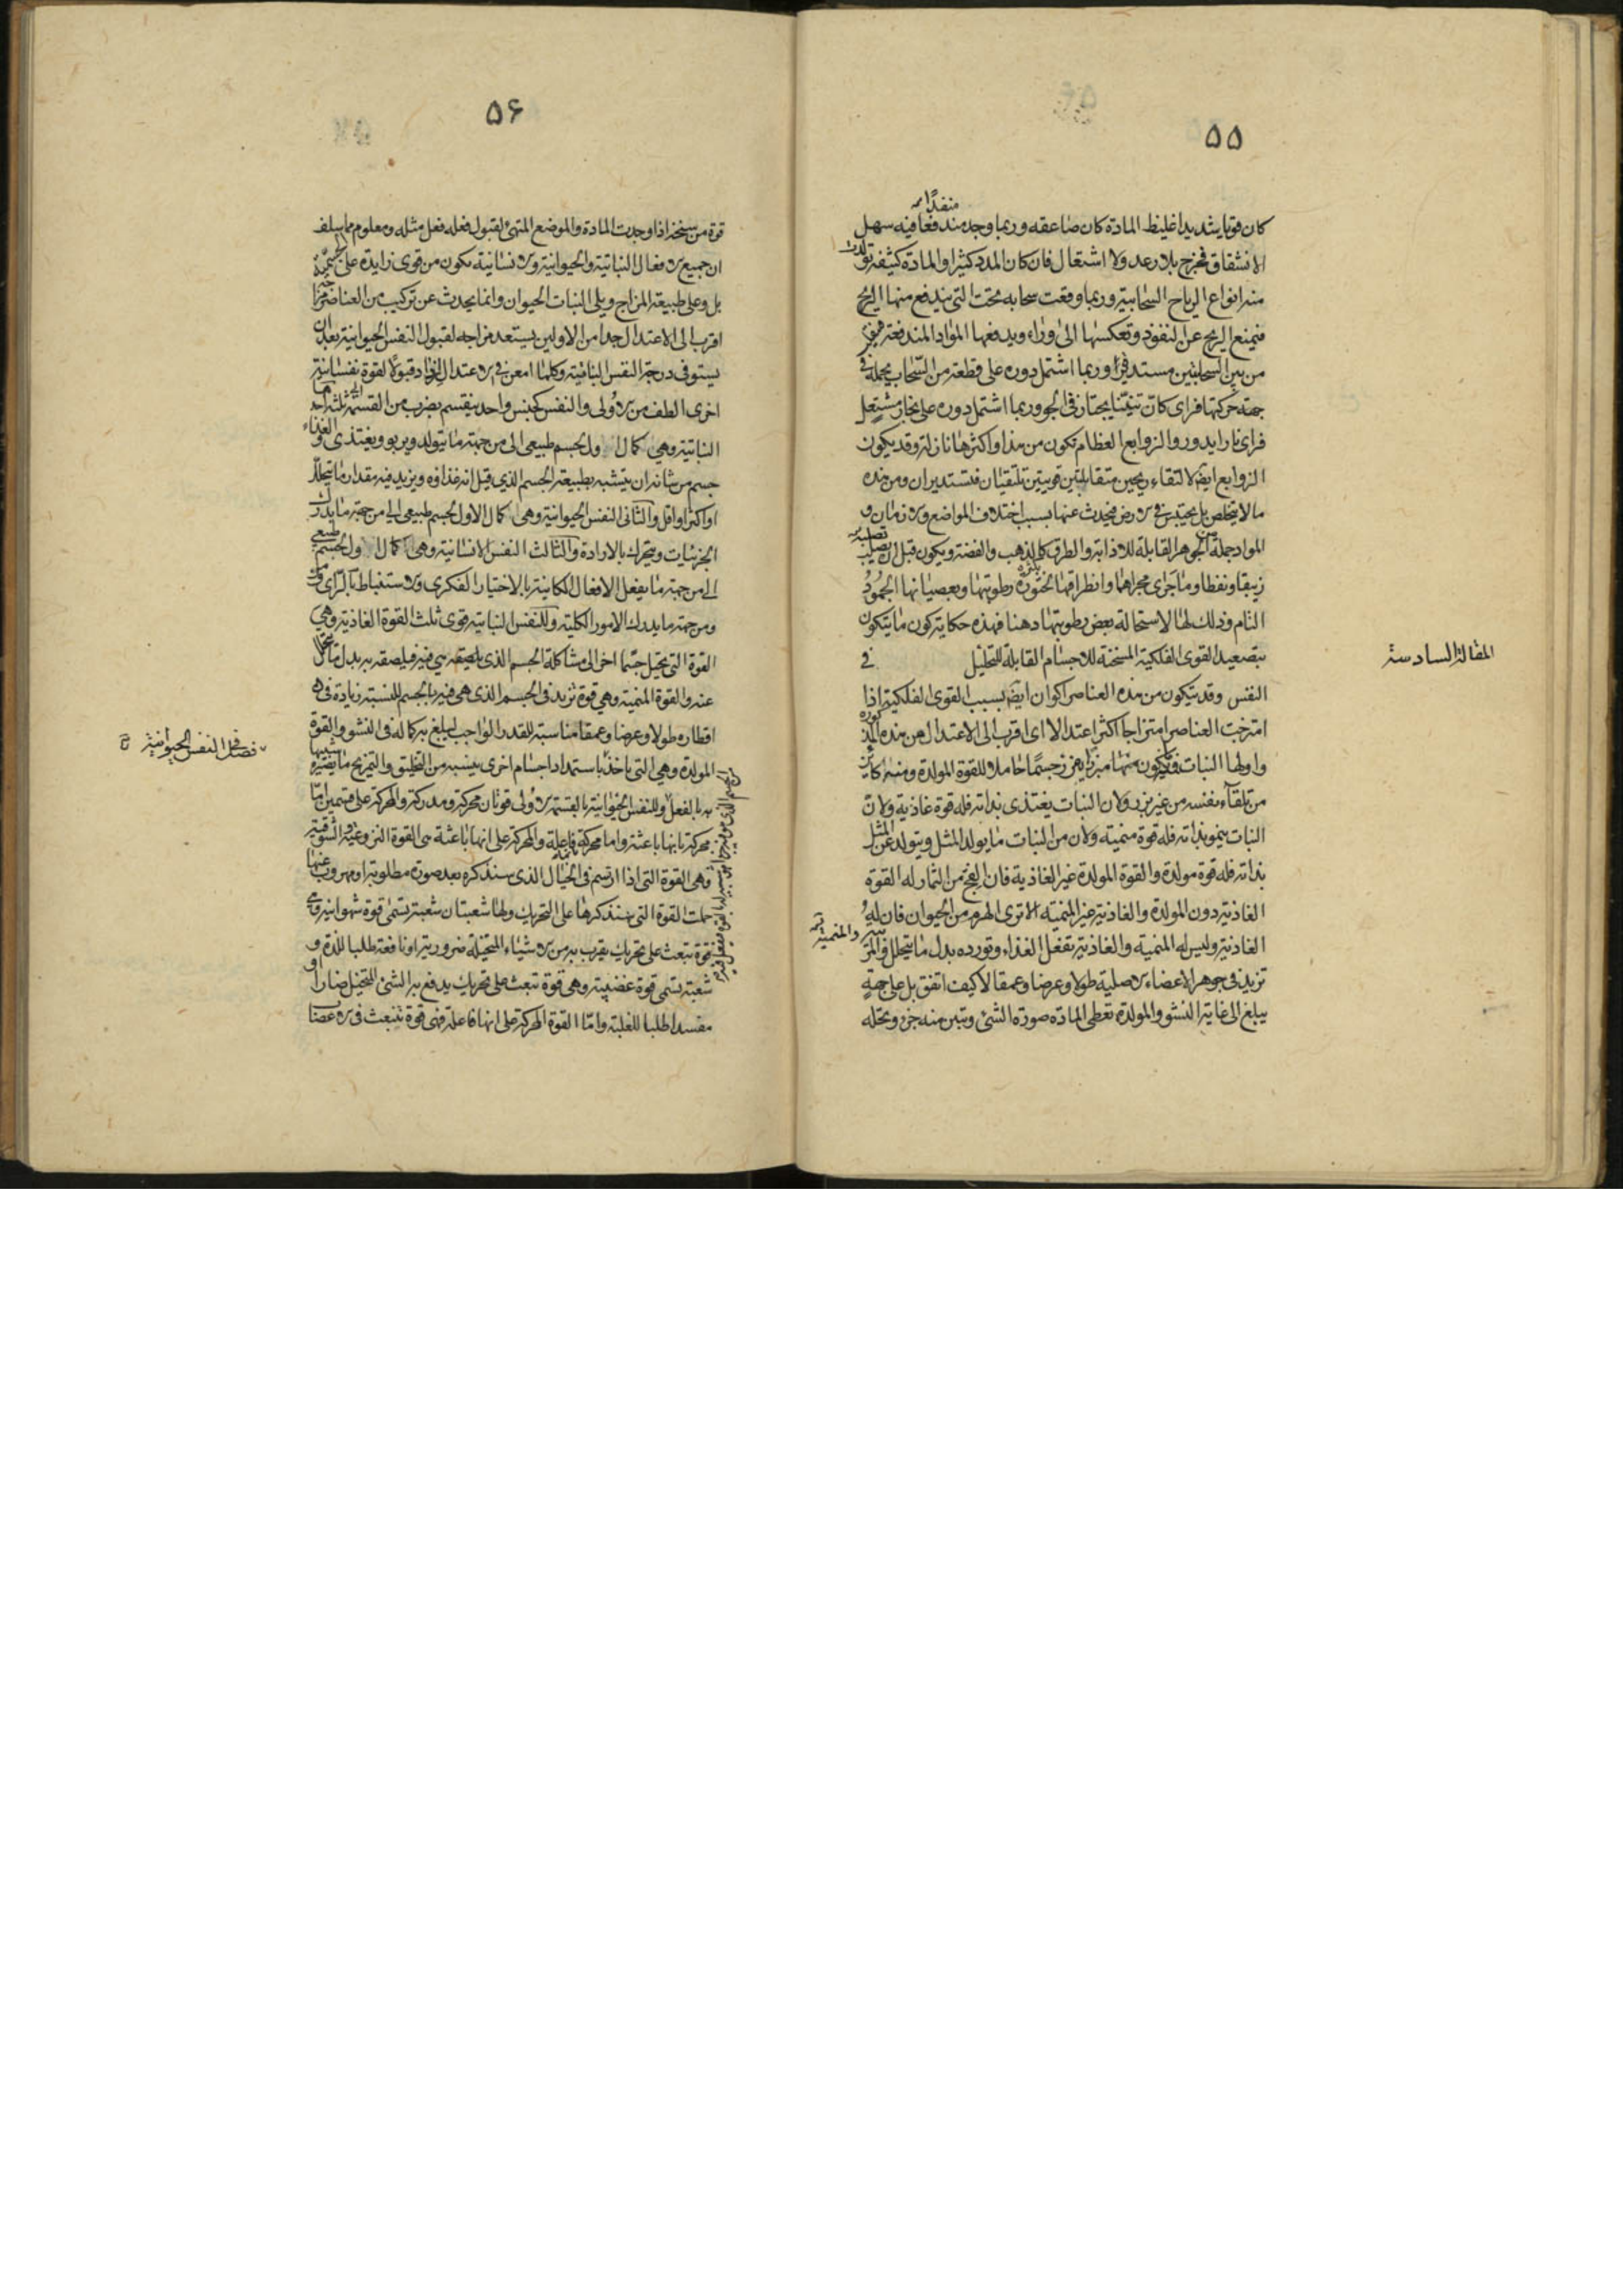 ۵۵
منفذًا
كان قويا شديدا غليظ المادة كان صاعقه وربما وجد مندفعا فيه سهل
الانشقاق فخرج بلا رعد ولا اشتعال فان كان المدد كثيرا والمادة كثيفة تولدت
منه انواع الرياح السحابية وربما وقعت سحابه تحت التي يندفع منها الريح
فيمنع الريح عن النفوذ وتعكسها الى وراء ويدفعها المواد المندفعة
من بين السحابتين مستديرا وربما اشتمل دوره على قطعة من السحاب يحمله في
جهة حركتها فراى كان تنينا يجتاز في الجو وربما اشتمل دوره على بخار مشتعل
فراى نارا يدور والزوابع العظام تكون من هذا واكثرها نازلة وقد يكون
الزوابع ايضا لالتقاء ريحين متقابلتين قويتين تلتقيان فتستديران ومن هذه
ما لا يتخلص بل يحتبس في الارض فيحدث عنها بسبب اختلاف المواضع والازمان و
المواد جملة من الجوهر القابلة للاذابة والطرق كالذهب والفضة ويكون قبل ان يصلب
زيبقا ونفطا وما جرى مجراهما وانطراقها لخثورة رطوبتها ولعصيانها الجمود
التام وذلك لها لاستحالة بعض رطوبتها دهنا فهذه حكاية تكون ما يتكون
بتصعيد القوى الفلكية المسخنة للاجسام القابلة للتحليل في
المقالة السادسة
النفس وقد يتكون من هذه العناصر اكوان ايضا بسبب القوى الفلكية اذا
امتزجت العناصر امتزاجا اكثر اعتدالا اى اقرب الى الاعتدال من هذه المذكورة
واولها النبات فيتكون منها مبزرا يفرز جسما حاملا للقوة المولدة ومنه كاين
من تلقاء نفسه من غير بزر ولان النبات يغتذى بذاته فله قوة غاذية ولان
النبات ينمو بذاته فله قوة منمية ولان من النبات ما يولد المثل ويتولد عن المثل
بذاته فله قوة مولدة والقوة المولدة غير الغاذية فان الفج من الثمار له القوة
الغاذية دون المولدة والغاذية غير المنمية الا ترى الهرم من الحيوان فان له
الغاذية وليس له المنمية والغاذية تفعل الغذاء وتورده بدل ما يتحلل والمنمية
تزيد في جوهر الاعضاء الاصلية طولا وعرضا وعمقا لا كيف اتفق بل على جهة
يبلغ الى غاية النشو والمولدة تعطى المادة صورة الشئ وتبين منه جزء وتحله
۵۶
قوة من سنخه اذا وجدت المادة والموضع المتهئ لقبول فعله فعل مثله ومعلوم مما سلف
ان جميع الافعال النباتية والحيوانية والانسانية تكون من قوى زايدة على الجسمية
بل وعلى طبيعة المزاج ويلى النبات الحيوان وانما يحدث عن تركيب من العناصر
اقرب الى الاعتدال جدا من الاولين يستعد مزاجه لقبول النفس الحيوانية بعد ان
يستوفى درجة النفس النباتية وكلما امعن في الاعتدال ازداد قبولا لقوة نفسانية
اخرى الطف من الاولى والنفس كجنس واحد ينقسم بضرب من القسمة ثلثة احدها
النباتية وهى كمال اول لجسم طبيعى الى من جهة ما يتولد ويربو ويغتذى والغذاء
جسم من شانه ان يتشبه بطبيعة الجسم الذي قيل انه غذاوه ويزيد فيه مقدار ما يتحلل
او اكثر او اقل والثانى النفس الحيوانية وهى كمال الاول لجسم طبيعى الى من جهة ما يدرك
الجزئيات ويتحرك بالارادة والثالث النفس الانسانية وهى كمال اول لجسم طبيعى
الى من جهة ما يفعل الافعال الكاينة بالاختيار الفكرى والاستنباط بالراى
ومن جهة ما يدرك الامور الكلية وللنفس النباتية قوى ثلث القوة الغاذية وهي
القوة التى تحيل جسما اخر الى مشاكلة الجسم الذى هي فيه فيلصقه به بدل ما يتحلل
عنه والقوة المنمية وهي قوة تزيد في الجسم الذى هى فيه بالجسم المتشبه زيادة في
اقطاره طولا وعرضا وعمقا مناسبة للقدر الواجب ليبلغ به كماله في النشو والقوة
المولدة وهي التى تاخذ باستمداد اجسام اخرى يتشبه من التخليق والتمزيج ما يصير شبيها
به بالفعل وللنفس الحيوانية بالقسمة الاولى قوتان محركة ومدركة والمحركة على قسمين اما
فصل في النفس الحيوانية
محركة بانها باعثة واما محركة فاعلة والمحركة على انها باعثة هى القوة النزوعية الشوقية
وهى القوة التى اذا ارتسم في الخيال الذى سنذكره بعد صورة مطلوبة او مهروب عنها
حملت القوة التي سنذكرها على التحريك ولها شعبتان شعبة تسمى قوة شهوانية وهي
قوة تبعث على تحريك يقرب به من الاشياء المتخيلة ضرورية او نافعة طلبا للذة و
شعبة تسمى قوة غضبية وهى قوة تبعث على تحريك يدفع به الشئ المتخيل ضارا او
مفسدا طلبا للغلبة واما القوة المحركة على انها فاعلة فهى قوة تنبعث في الاعصاب